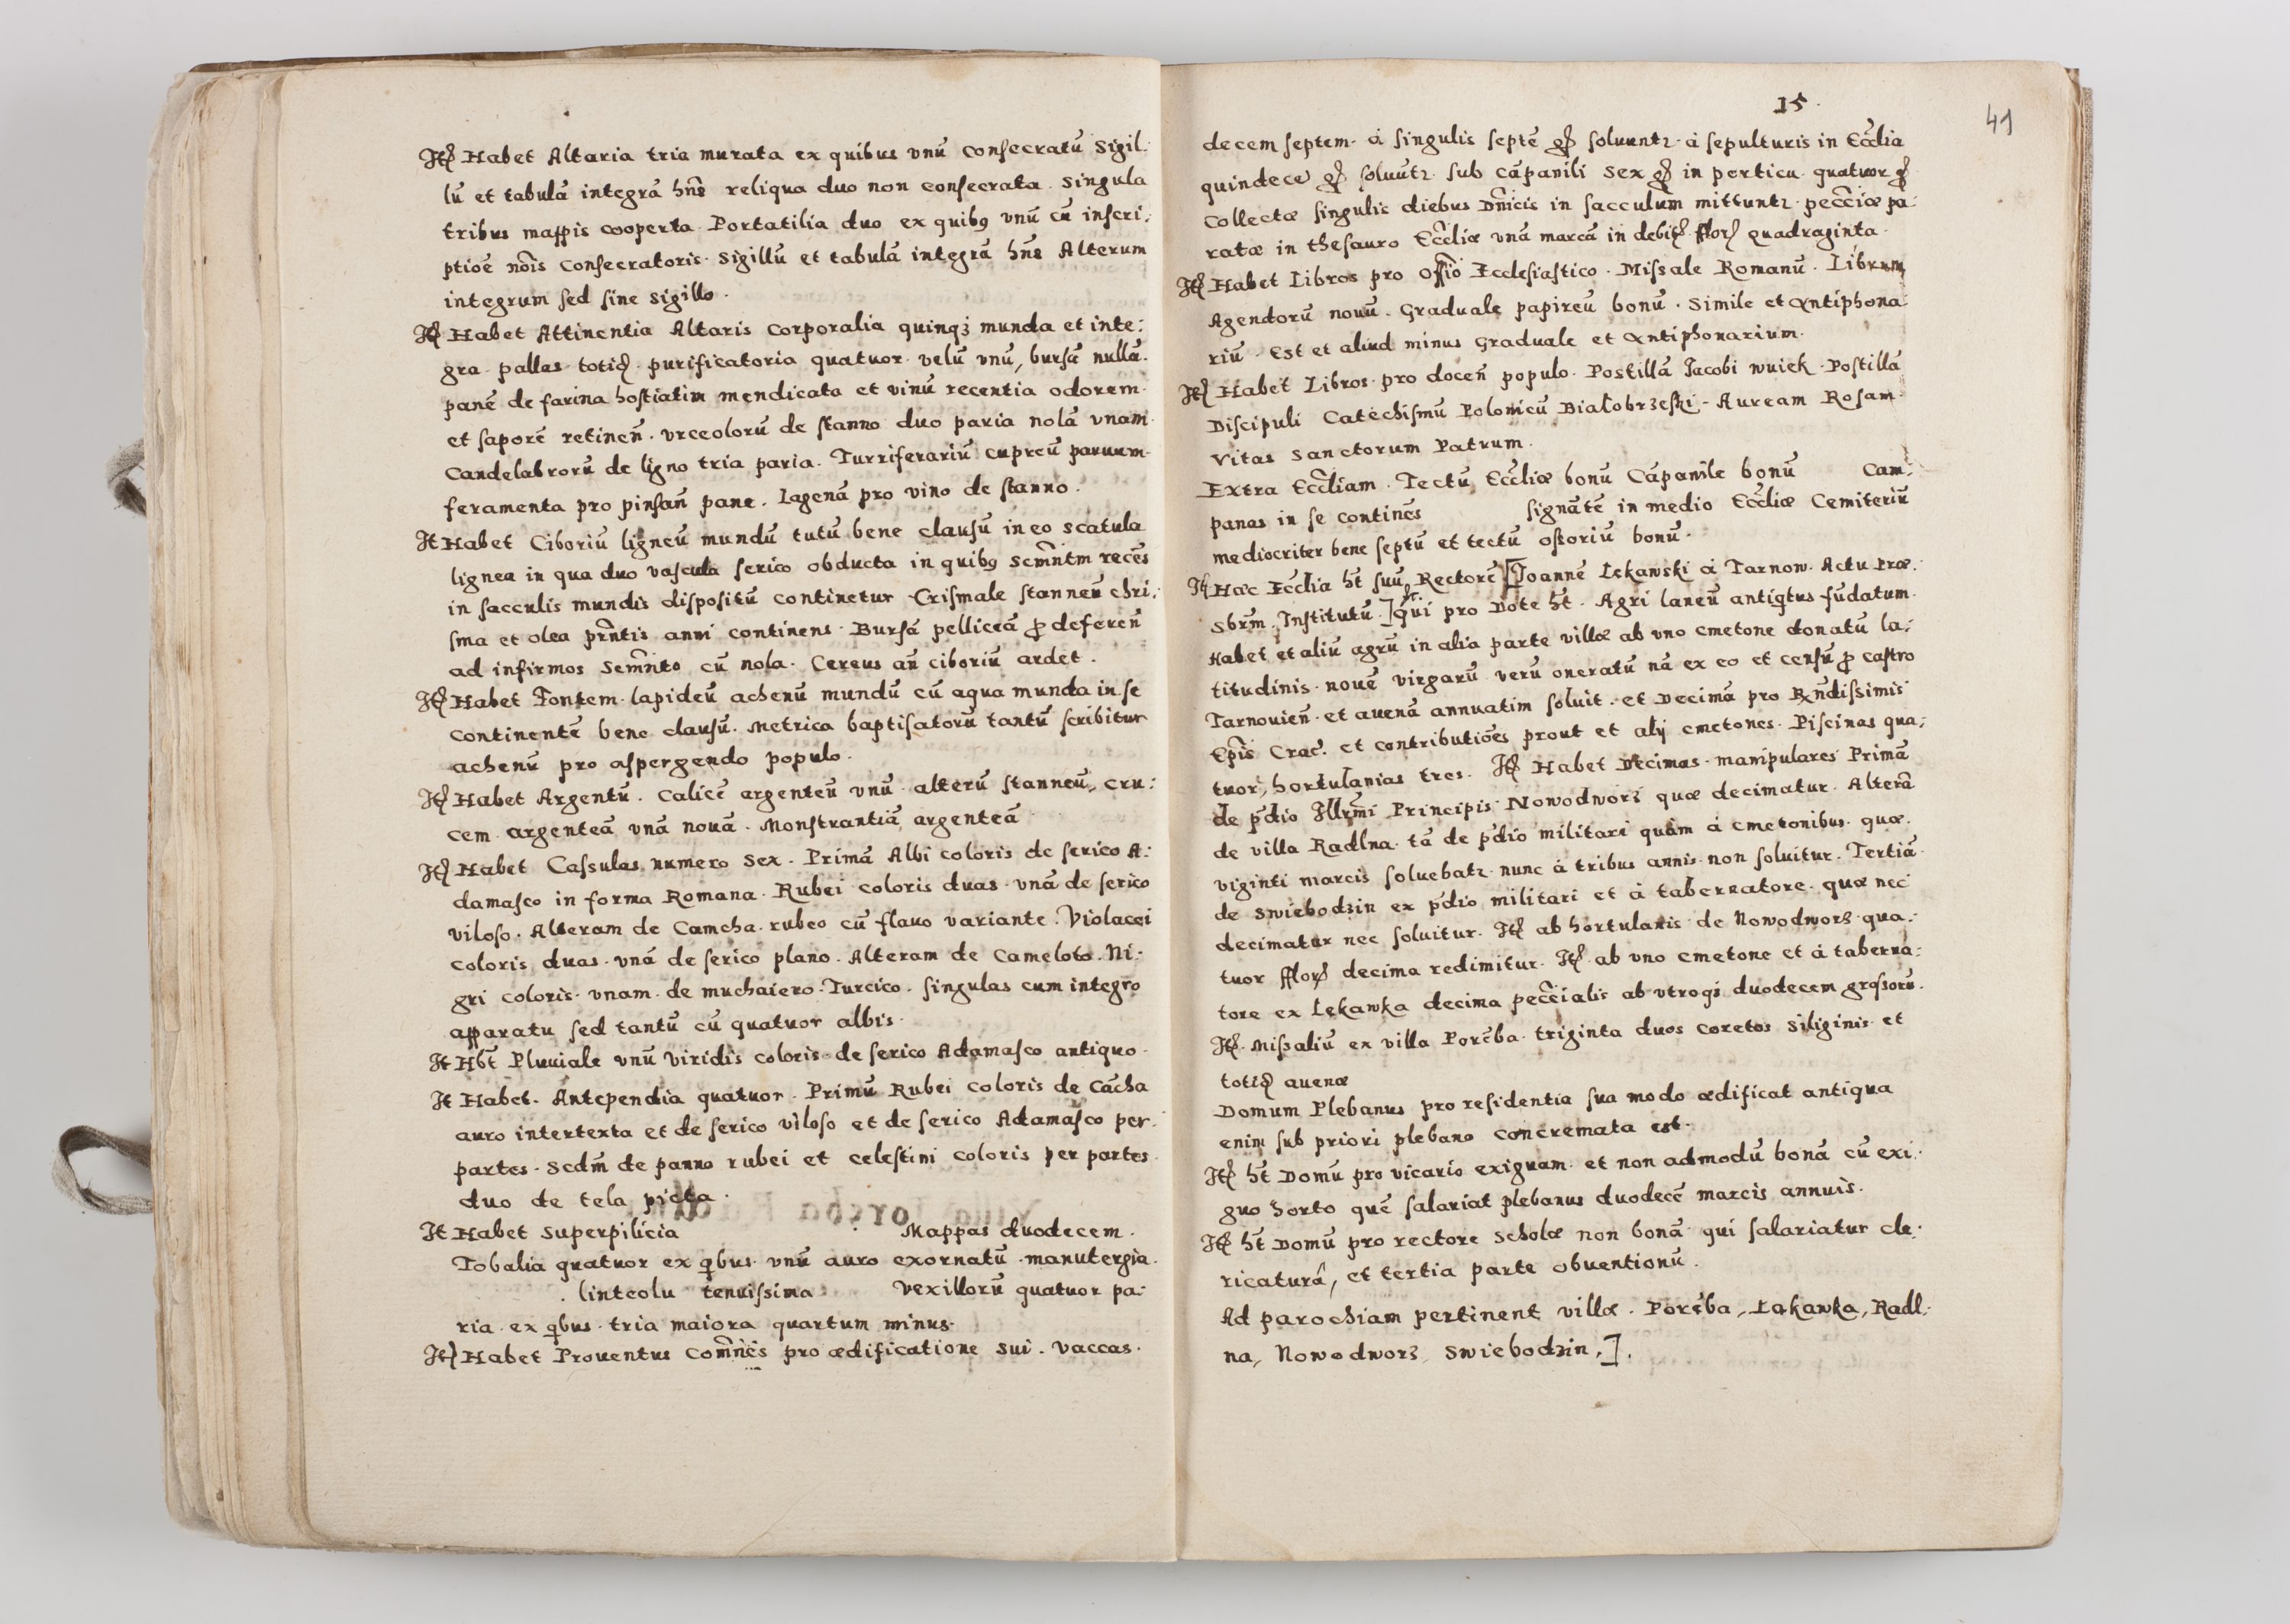 Itē Habet Altaria tria murata ex quibus vnū consecratū Sigil:
lū et tabulā integrā hñs reliqua duo non consecrata. Singula
tribus mappis cooperta. Portatilia duo ex quibꝯ vnū cū inscri:
ptioē nōis consecratoris. Sigillū et tabulā integrā hñs Alterum
integrum sed sine Sigillo.
Itē Habet Attinentia Altaris Corporalia quinqꝫ munda et inte:
gra pallas totiđ. purificatoria quatuor. velū vnū, bursā nullā.
panē de farina hostiatim mendicata et vinū recentia odorem.
et saporē retineñ. vrceolorū de stanno duo paria nolā vnam.
Candelabrorū de ligno tria paria. Turriferariū cupreū paruum.
feramenta pro pinsañ pane. Lagenā pro vino de stanno.
It Habet Ciboriū ligneū mundū tutū bene clausū in eo scatula
lignea in qua duo vascula serico obducta in quibꝯ Scm̃ntm recēs
in sacculis mundis dispositū continetur Crismale stanneū chri:
sma et olea prñtis anni continens. Bursā pelliceā ꝓ defereñ
ad infirmos Sem̃nto cū nola. Cereus añ ciboriū ardet.
Itē Habet Fontem lapideū achenū mundū cū aqua munda in se
continentē bene clausū. Metrica baptisatorū tantū scribitur
achenū pro aspergendo populo.
Itē Habet Argentū. Calicē argenteū vnū alterū stanneū, cru:
cem argenteā vnā nouā. Monstrantiā argenteā
Itē Habet Casulas numero Sex. Primā Albi coloris de serico A:
damasco in forma Romana. Rubei coloris duas vnā de serico
viloso. Alteram de Camcha rubeo cū flauo variante. Violacei
coloris duas. vnā de serico plano. Alteram de Cameloto. Ni:
gri coloris vnam de muchaiero Turcico. singulas cum integro
apparatu sed tantū cū quatuor albis.
It Hbt̄ Pluuiale vnū viridis coloris de serico Adamasco antiquo.
It Habet. Antependia quatuor. Primū Rubei coloris de Cācha
auro intertexta et de serico viloso et de serico Adamasco per
partes. Scdm̄ de panno rubei et celestini coloris per partes
duo de tela picta.
It Habet Superpilicia Mappas duodecem.
Tobalia quatuor ex qbus vnū auro exornatū manutergia.
linteolu tenuissima Vexillorū quatuor pa:
ria ex qbus tria maiora quartum minus.
Itē Habet Prouentus com̃nēs pro ædificatione sui. vaccas.
15.
41
decem septem. à singulis septē gꝭ soluuntꝛ à sepulturis in Ecc̄lia
quindecē gꝭ soluūtꝛ sub cāpanili Sex gꝭ in porticu quatuor gꝭ
Collectæ singulis diebus Dñicis in sacculum mittuntꝛ pecc̄iæ pa:
ratæ in thesauro Ecc̄liæ vnā marcā in debitꝭ fflorꝭ quadraginta.
Itē Habet Libros pro offiō Ecclesiastico. Missale Romanū. Librum
Agendorū nouū. Graduale papireū bonū. Simile et Antiphona:
riū. Est et aliud minus Graduale et Antiphonarium.
Itē Habet Libros pro doceñ populo. Postillā Jacobi wuiek. Postillā
Discipuli Catechismū Polonicū Białobrzeski. Auream Rosam.
Vitas Sanctorum Patrum.
Extra Ecc̄liam. Tectū Ecc̄liæ bonū Cāpanile bonū Cam:
panas in se continēs signātē in medio Ecc̄liæ Cemiteriū
mediocriter bene septū et tectū ossoriū bonū.
It Hæc Ecc̄lia ht̄ suū Rectorē [Joannē Lękawski à Tarnow. Actu Præ.
Sbrm̄. Institutū.] qui pro Dote ht̄. Agri laneū antiqtus fūdatum.
Habet et aliū agrū in alia parte villæ ab vno cmetone donatū la:
titudinis nouē virgarū verū oneratū nā ex eo et censū ꝓ castro
Tarnouieñ et auenā annuatim soluit. et Decimā pro Rx̄ndissimis
Ep̄is Crac̄. et contributiōes prout et alij cmetones. Piscinas qua:
tuor, hortulanias tres. Itē Habet Decimas manipulares Primā
de p̄dio Illrm̄i Principis Nowodworz quæ decimatur. Alterā
de villa Radlna tā de p̄dio militari quàm à cmetonibus quæ
viginti marcis soluebatꝛ nunc à tribus annis non soluitur. Tertiā
de Swiebodzin ex p̄dio militari et à tabernatore quæ nec
decimatur nec soluitur. Itē ab hortulanis de Nowodworz qua:
tuor fflorꝭ decima redimitur. Itē ab vno cmetone et à taberna:
tore ex Lękawka decima pecc̄ialis ab vtroqꝫ duodecem grossorū.
Itē. Missaliū ex villa Porēba triginta duos coretos siliginis et
totiđ auenæ
Domum Plebanus pro residentia sua modo ædificat antiqua
enim sub priori plebano concremata est.
Itē ht̄ Domū pro vicario exiguam et non admodū bonā cū exi:
guo horto quē salariat plebanus duodecē marcis annuis.
Itē ht̄ Domū pro rectore Scholæ non bonā qui salariatur cle:
ricaturâ, et tertia parte obuentionū.
Ad parochiam pertinent villæ. Porēba, Lękawka, Radl:
na, Nowodworz, Swiebodzin.].